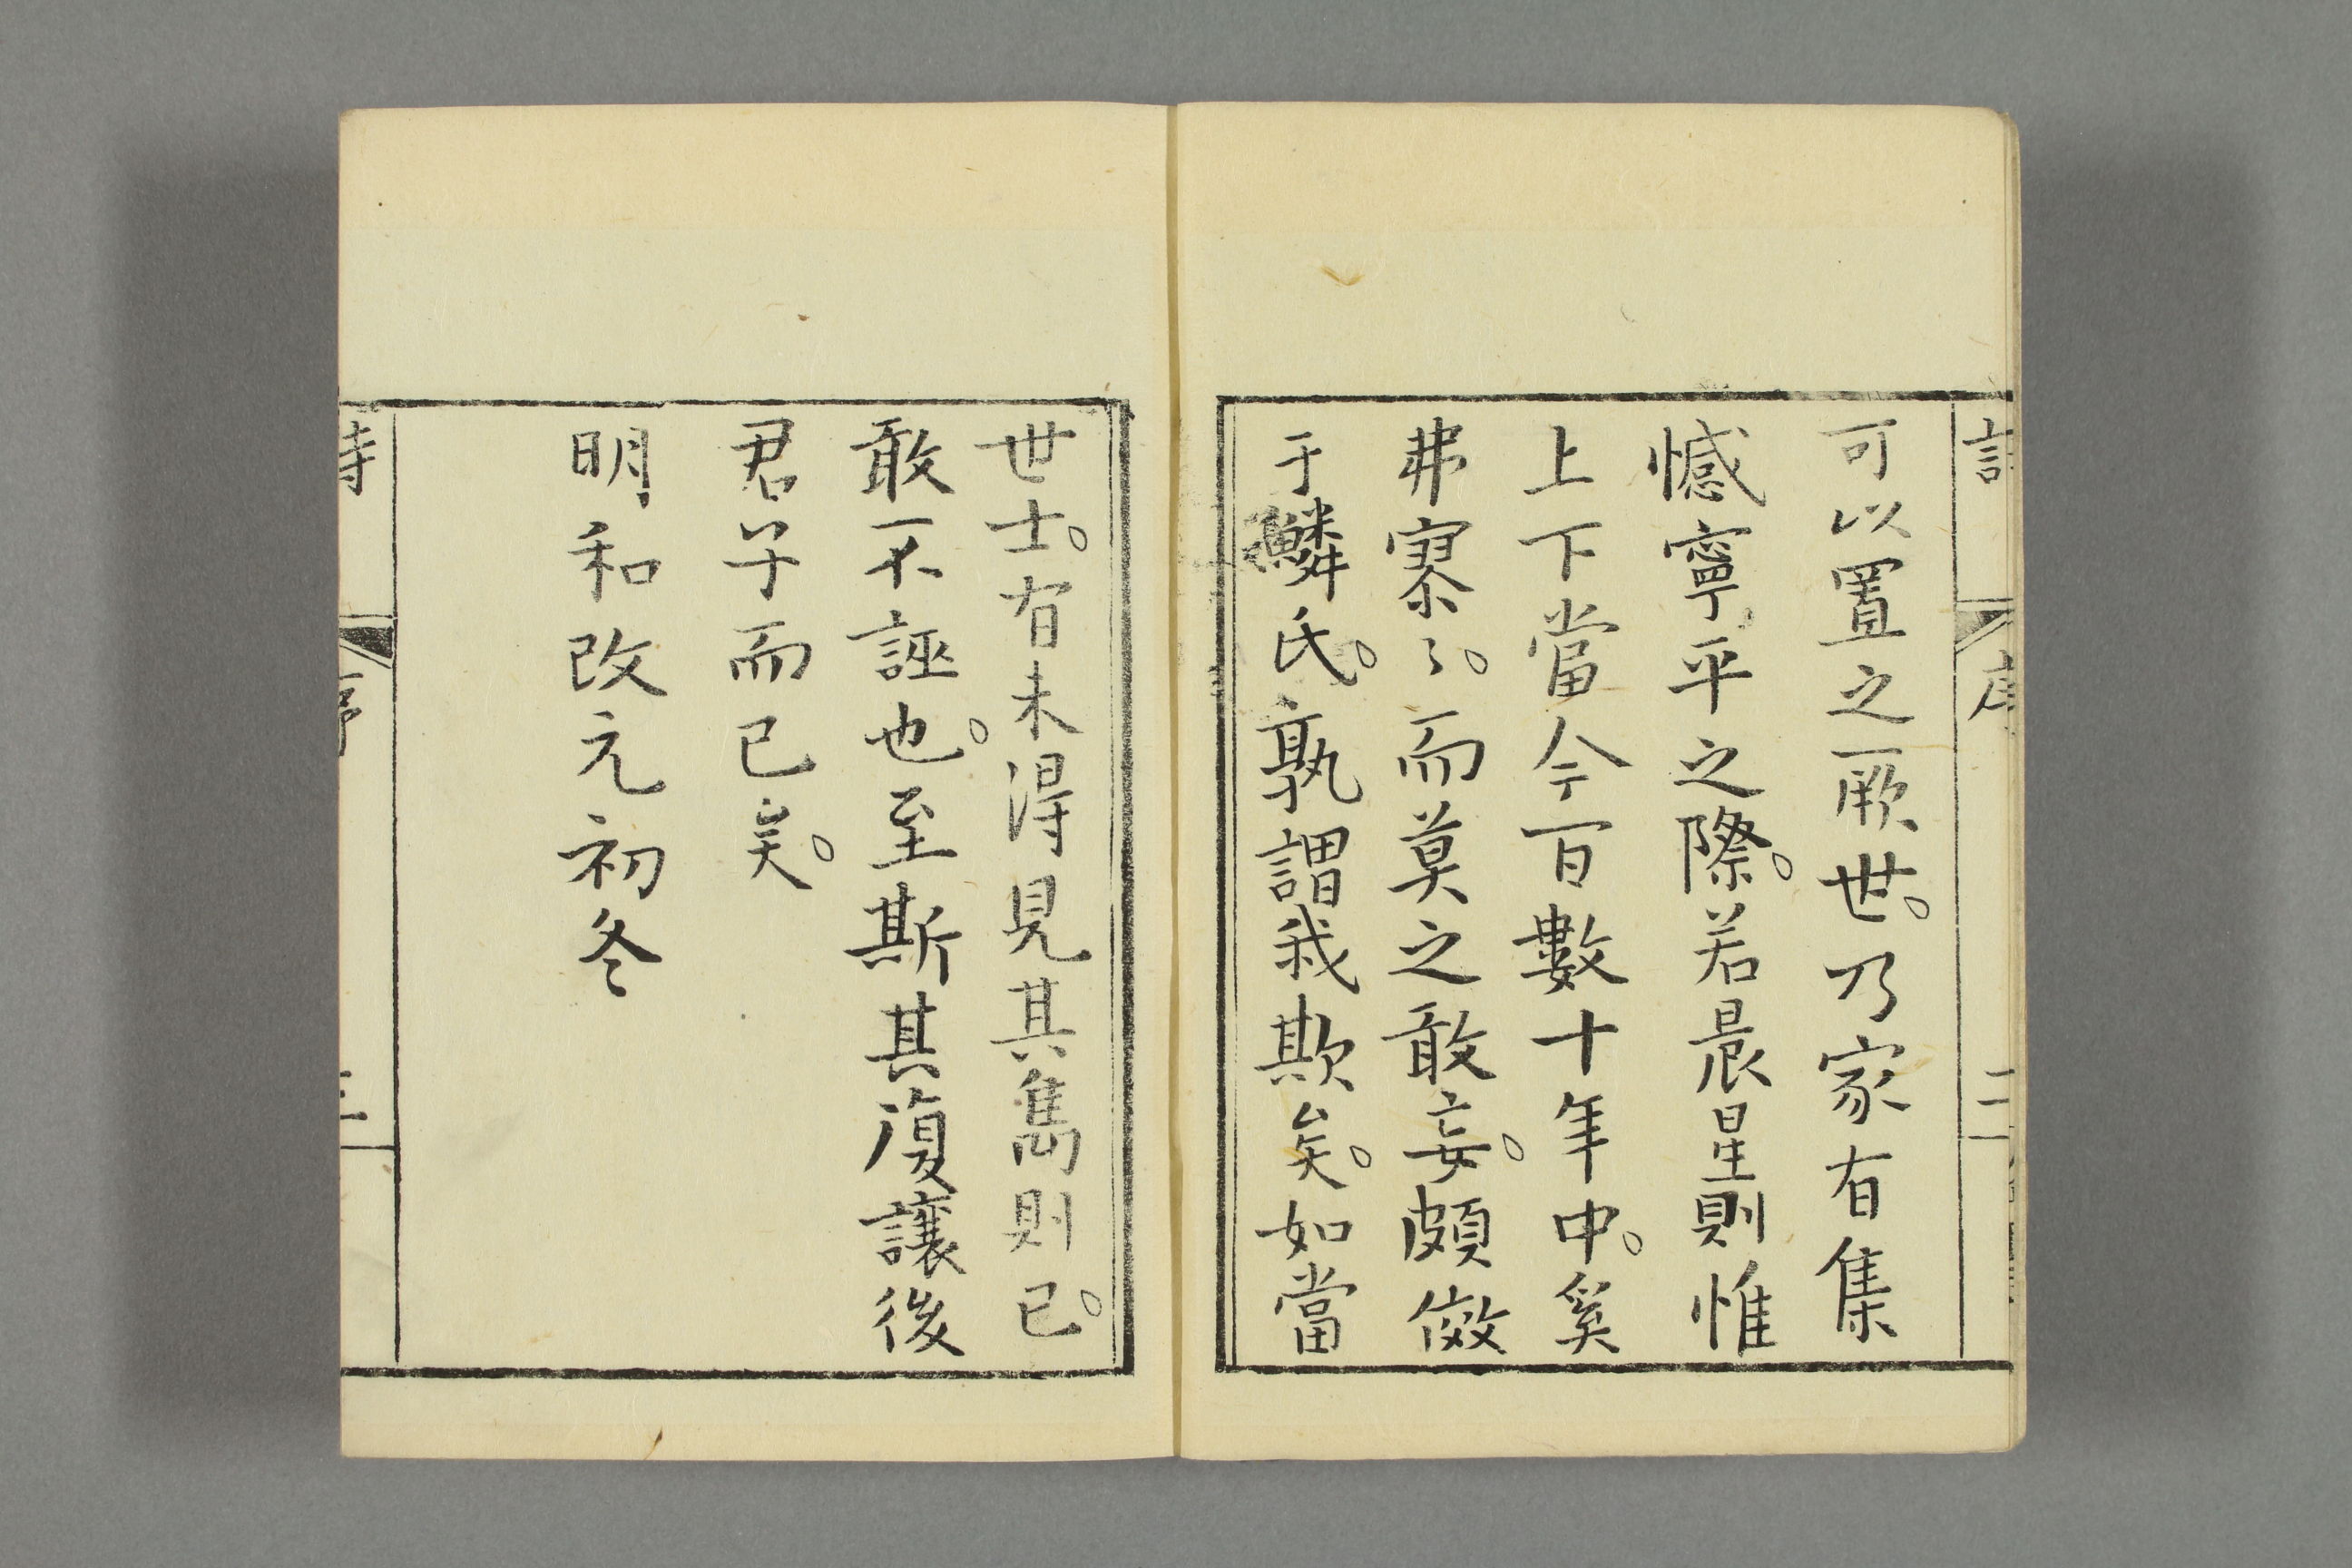 可以置之厥世。乃家有集
憾寧平之際。若晨星則惟
上下當今百數十年中。奚
弗寥々。而莫之敢妄。頗傚
于鱗氏。孰謂我欺矣。如當
世士。有未得見其雋則已。
敢不誣也。至斯其復讓後
君子而已矣。
明和改元初冬
詩
序
二
詩
序
三